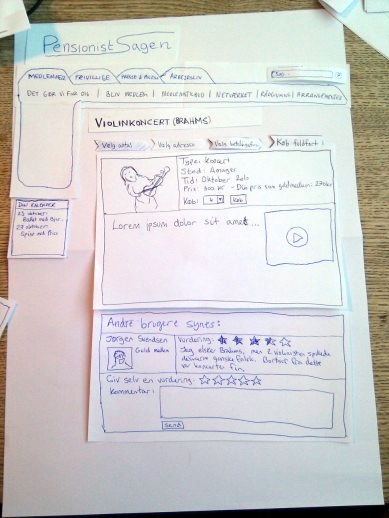 PensionistSagen
MEDLEMMER FRIVILLIGE PRESSE & POLITIK ARBEJDSLIV
Søg...
DET GØR VI FOR DIG | BLIV MEDLEM | MEDLEMSTILBUD | NETVÆRKET | RÅDGIVNING | ARRANGEMENTER
VIOLINKONCERT (BRAHMS)
Vælg antal Vælg adresse Vælg betaling Køb fuldført!
Type: Koncert
Sted: Amager
Tid: Oktober 2010
Pris: 300 kr - Din pris som guldmedlem: 270 kr
Køb: 4 Køb
DIN KALENDER
23 oktober:
27 oktober:
Lorem ipsum dolor sit amet...
Andre brugere synes:
Jørgen Svendsen Vurdering:
Guld medlem
Jeg elsker Brahms, men 2 violinisten spillede
desværre ganske falsk. Bortset fra dette
var koncerten fin.
Giv selv en vurdering:
Kommentar:
Send